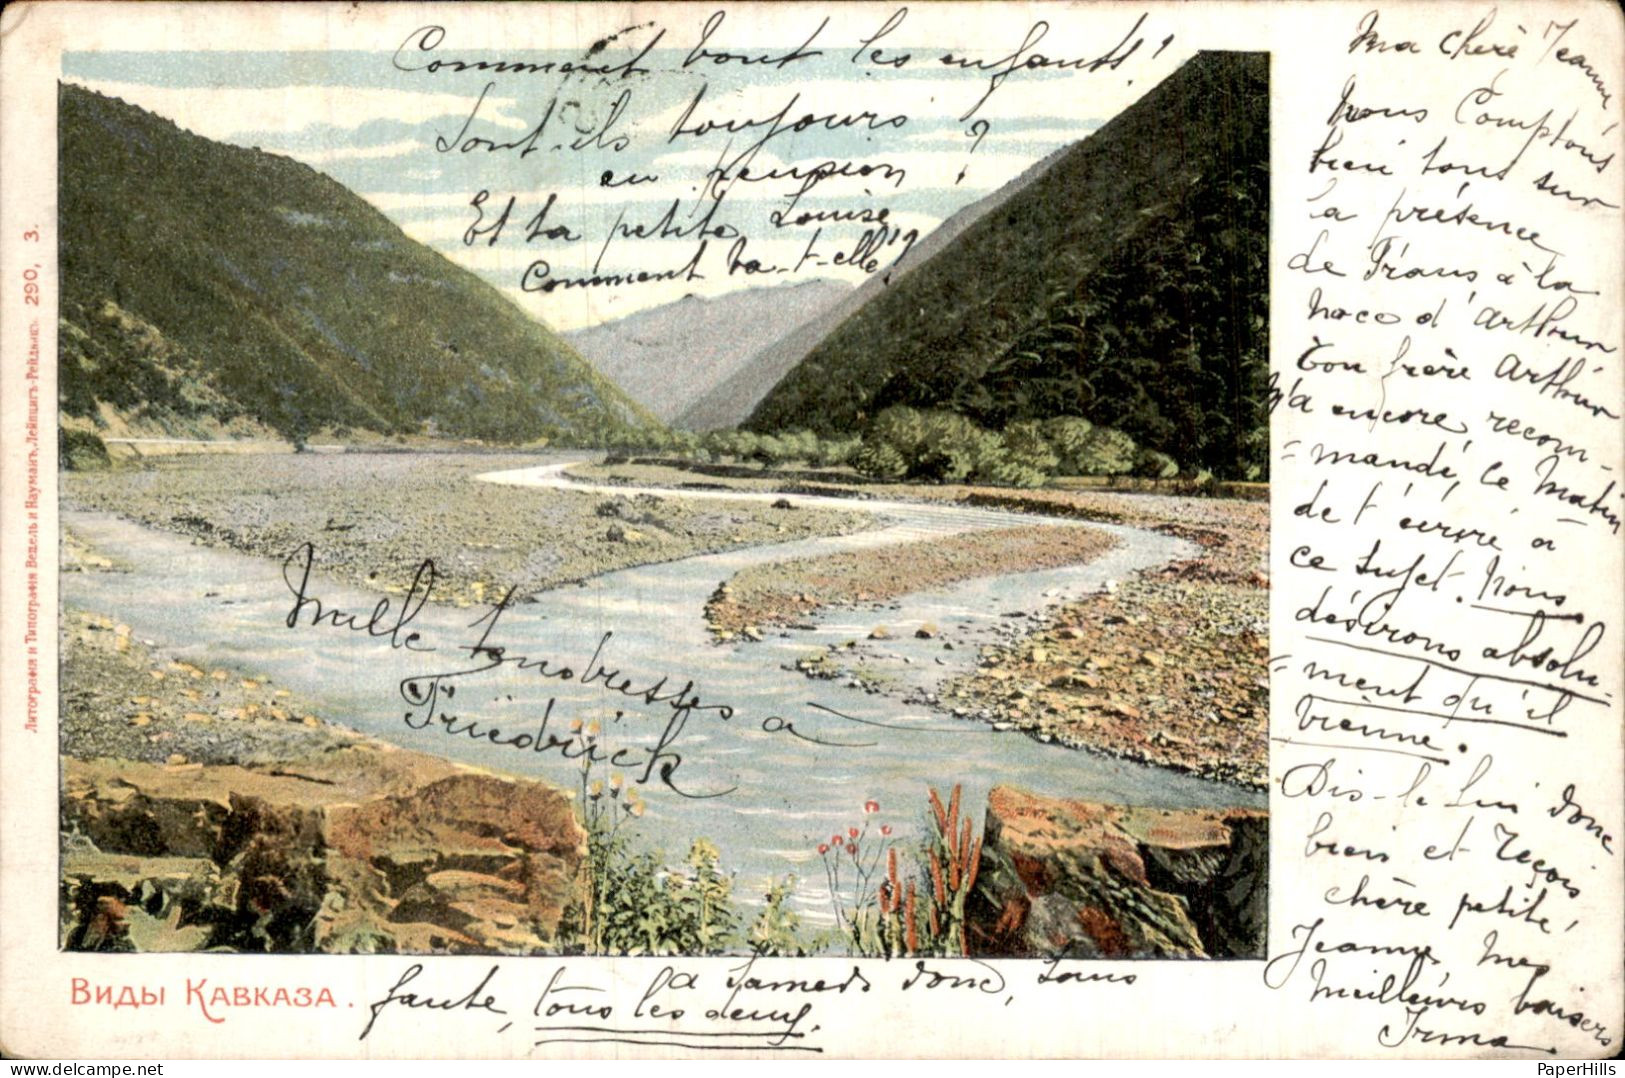 Comment vont les enfants!
Sont-ils toujours
en pension ?
Et ta petite Louise
Comment va-t-elle!?
Ma chère Jeanne,
Nous Comptons
bien tous sur
la présence
de Frans à la
noce d'Arthur
Ton frère Arthur
m'a encore recom-
=mandé, ce Matin
de t'écrire à
ce sujet. Nous
désirons absolu-
=ment qu'il
vienne.
Dis-le lui donc
bien et reçois
chère petite,
Jeanne, mes
Meilleurs baisers
Irma
Mille tendresses à
Friedrick
à Samedi donc, sans
faute, tous les deux.
Виды Кавказа.
Литографiя и Типографiя Ведель и Науманъ, Лейпцигъ-Рейдницъ. 290, 3.
PaperHills